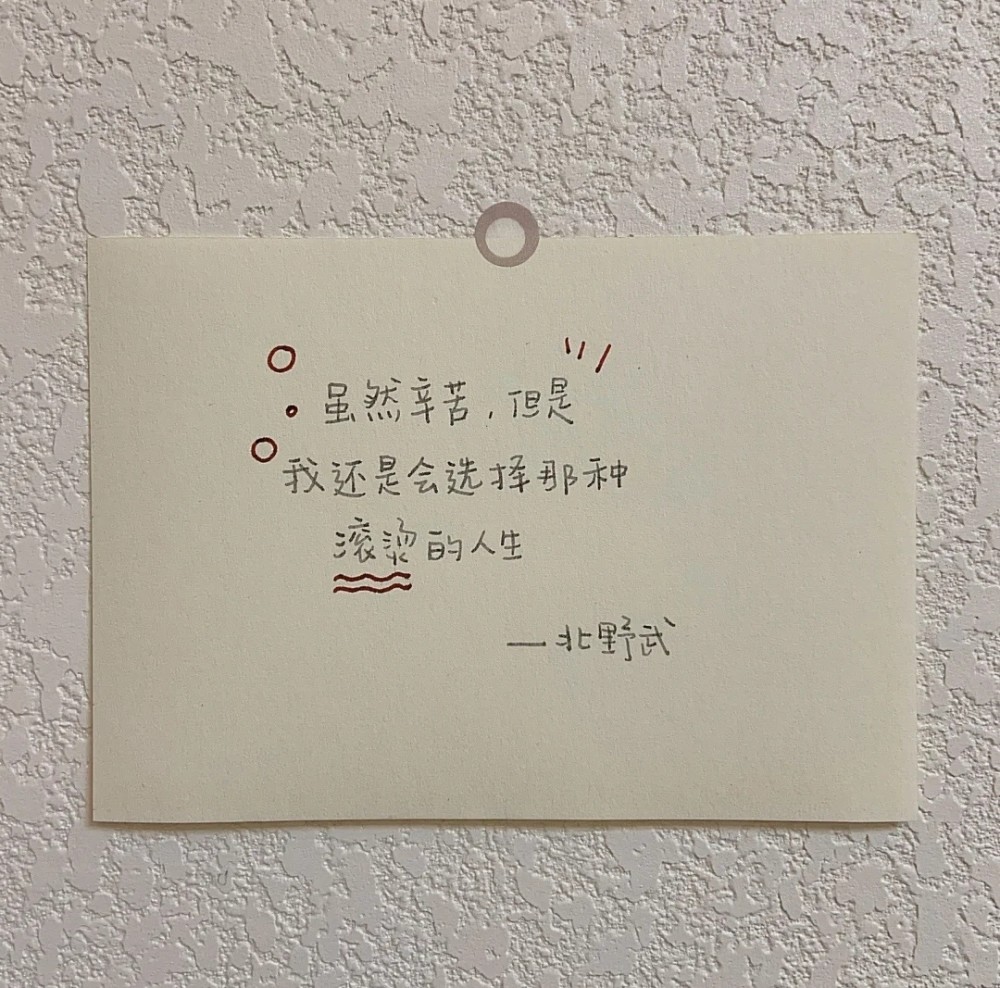 虽然辛苦，但是
我还是会选择那种
滚烫的人生
—北野武